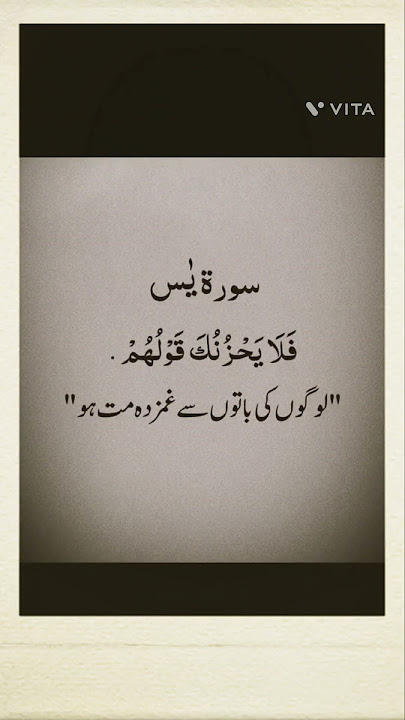 VITA
سورة يٰس
فَلَا يَحْزُنُكَ قَوْلُهُمْ .
"لوگوں کی باتوں سے غمزدہ مت ہو"